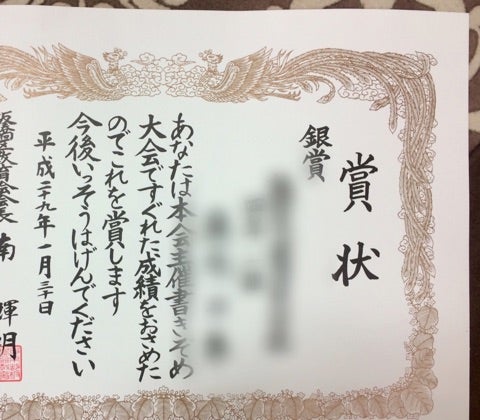 賞状
銀賞
あなたは本会主催書きぞめ
大会ですぐれた成績をおさめた
のでこれを賞します
今後いっそうはげんでください
平成二十九年一月三十日
会長 南 輝明